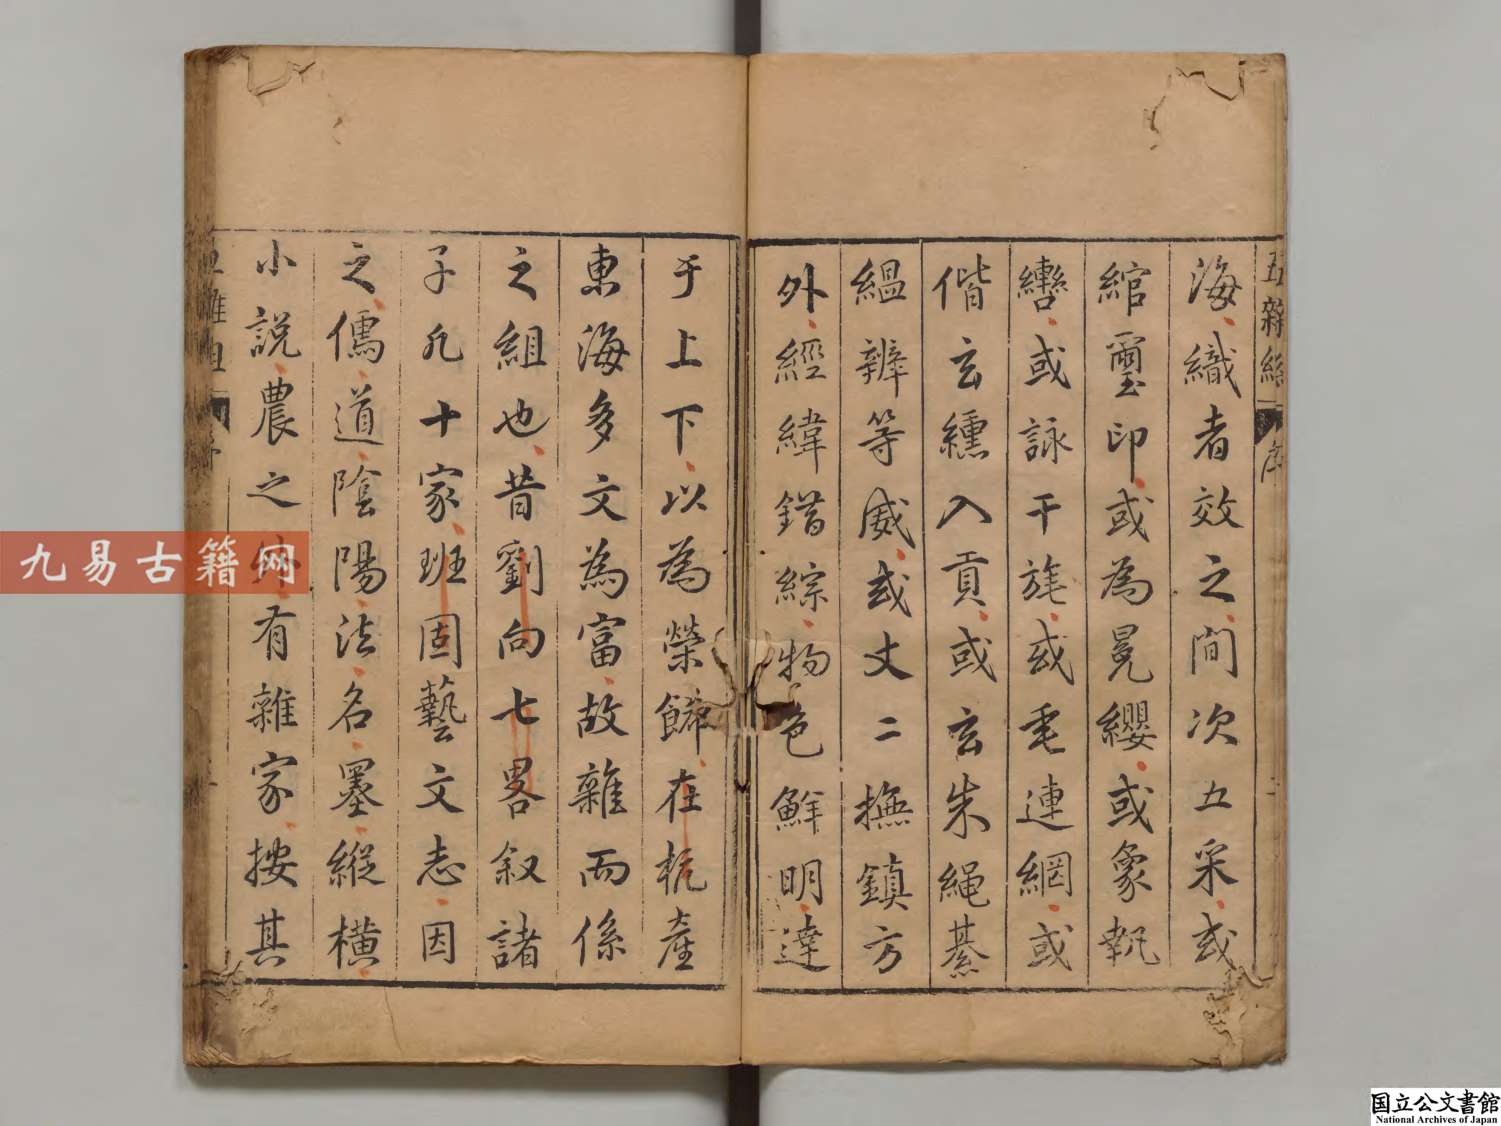 五雜組 序
海織者效之間次五采或
綰璽印或為冕纓或象執
轡或詠干旄或垂連網或
偕玄纁入貢或玄朱繩綦
縕辨等威或丈二撫鎮方
外經緯錯綜物色鮮明達
于上下以為榮飾在杭產
東海多文為富故雜而係
之組也昔劉向七畧叙諸
子凡十家班固藝文志因
之儒道陰陽法名墨縱橫
小說農之外有雜家按其
五雜組
九易古籍网
国立公文書館
National Archives of Japan